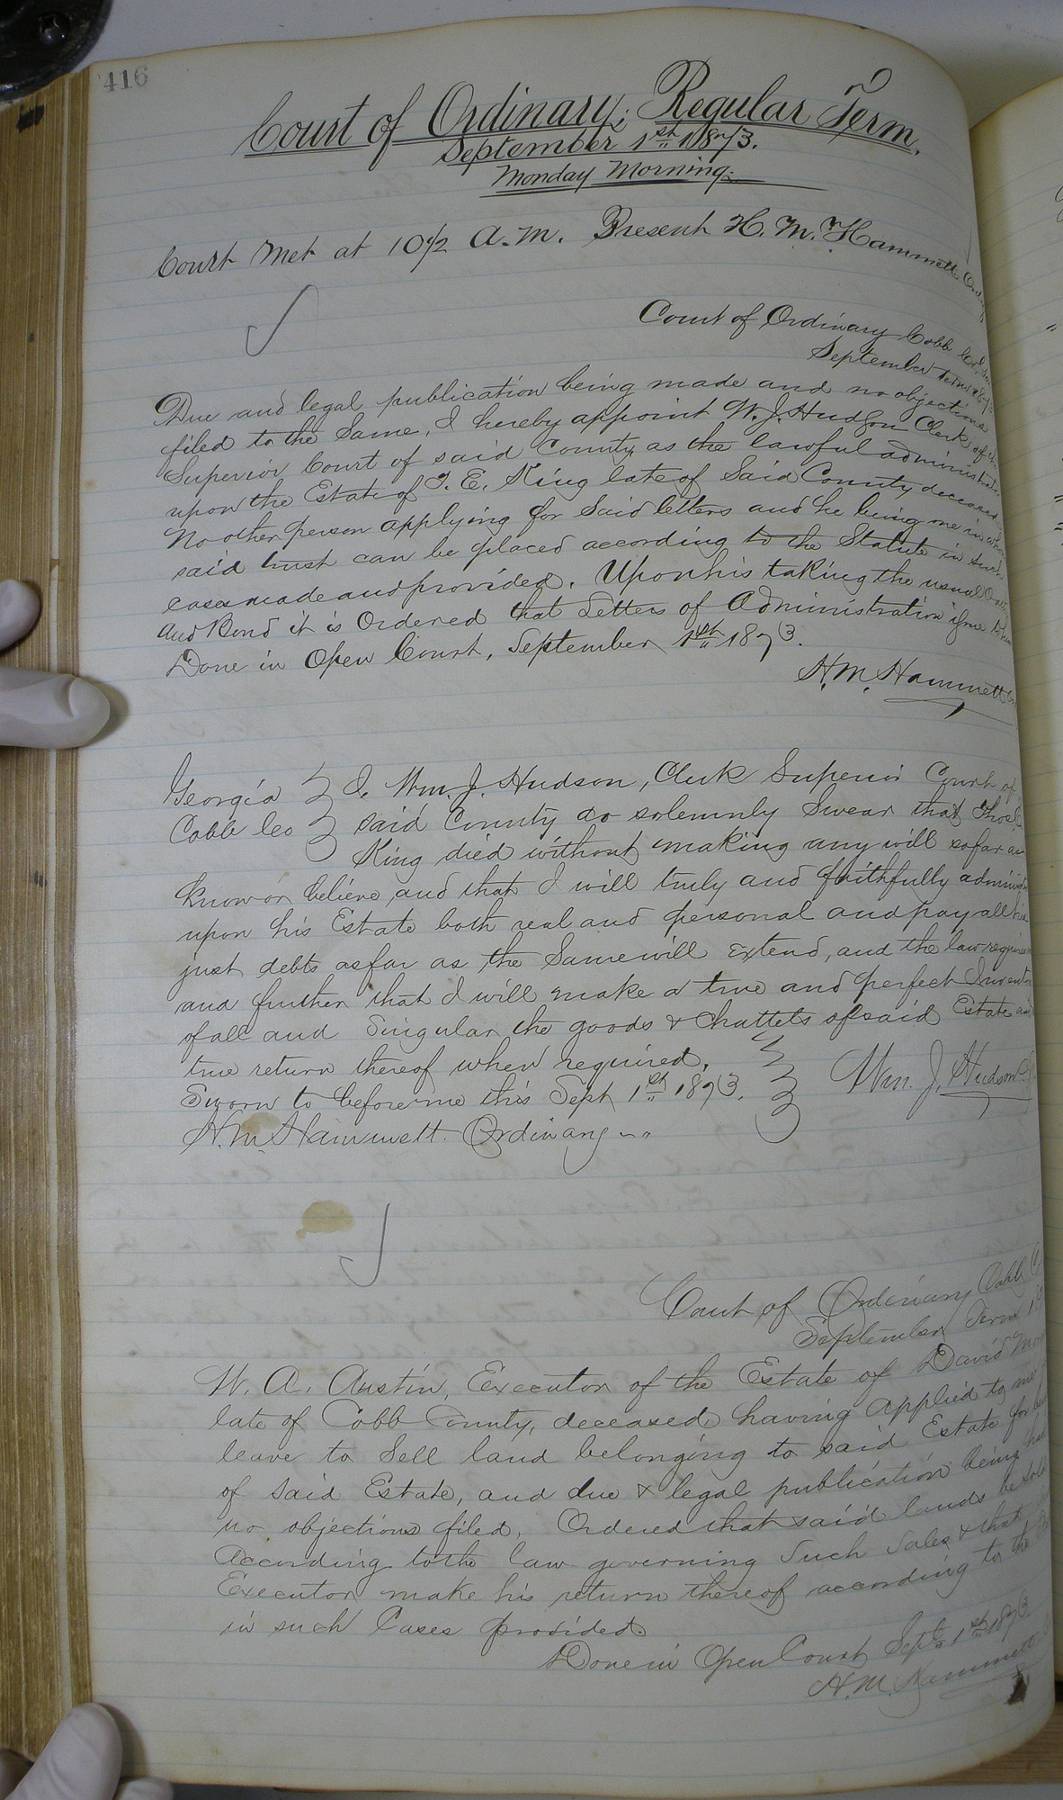 416
Court of Ordinary; Regular Term.
September 1st 1873.
Monday Morning.
Court Met at 10 1/2 A.M. Present H. M. Hammett
Court of Ordinary Cobb
September Term
Due and legal publication being made and no objections
filed to the Same, I hereby appoint W. J. Hudson Clerk of
Superior Court of said County as the lawful
upon the Estate of T. E. King late of Said County deceased
No other person applying for Said letters and he being one in
said trust can be placed according to the Statute in such
cases made and provided. Upon his taking the usual
And Bond it is Ordered that Letters of Administration issue
Done in Open Court, September 1st 1873.
H. M. Hammett
Georgia I, Wm. J. Hudson, Clerk Superior Court of
Cobb Co said County do solemnly Swear that
King died without making any will so far as
know or believe, and that I will truly and faithfully
upon his Estate both real and personal and pay all his
just debts as far as the Same will extend, and the law
and further that I will make a true and perfect
of all and Singular the goods & Chattels of said Estate
true return thereof when required.
Sworn to before me this Sept 1st 1873. Wm. J. Hudson
H. M. Hammett Ordinary
Court of Ordinary Cobb
September Term
W. A. Austin, Executor of the Estate of David
late of Cobb County, deceased having applied to me
leave to Sell land belonging to said Estate for
of said Estate, and due & legal publication being
no objections filed. Ordered that said lands be sold
According to the law governing Such Sales & that
Executor make his return thereof according to the
in such Cases provided.
Done in Open Court Sept 1st 1873
H. M. Hammett